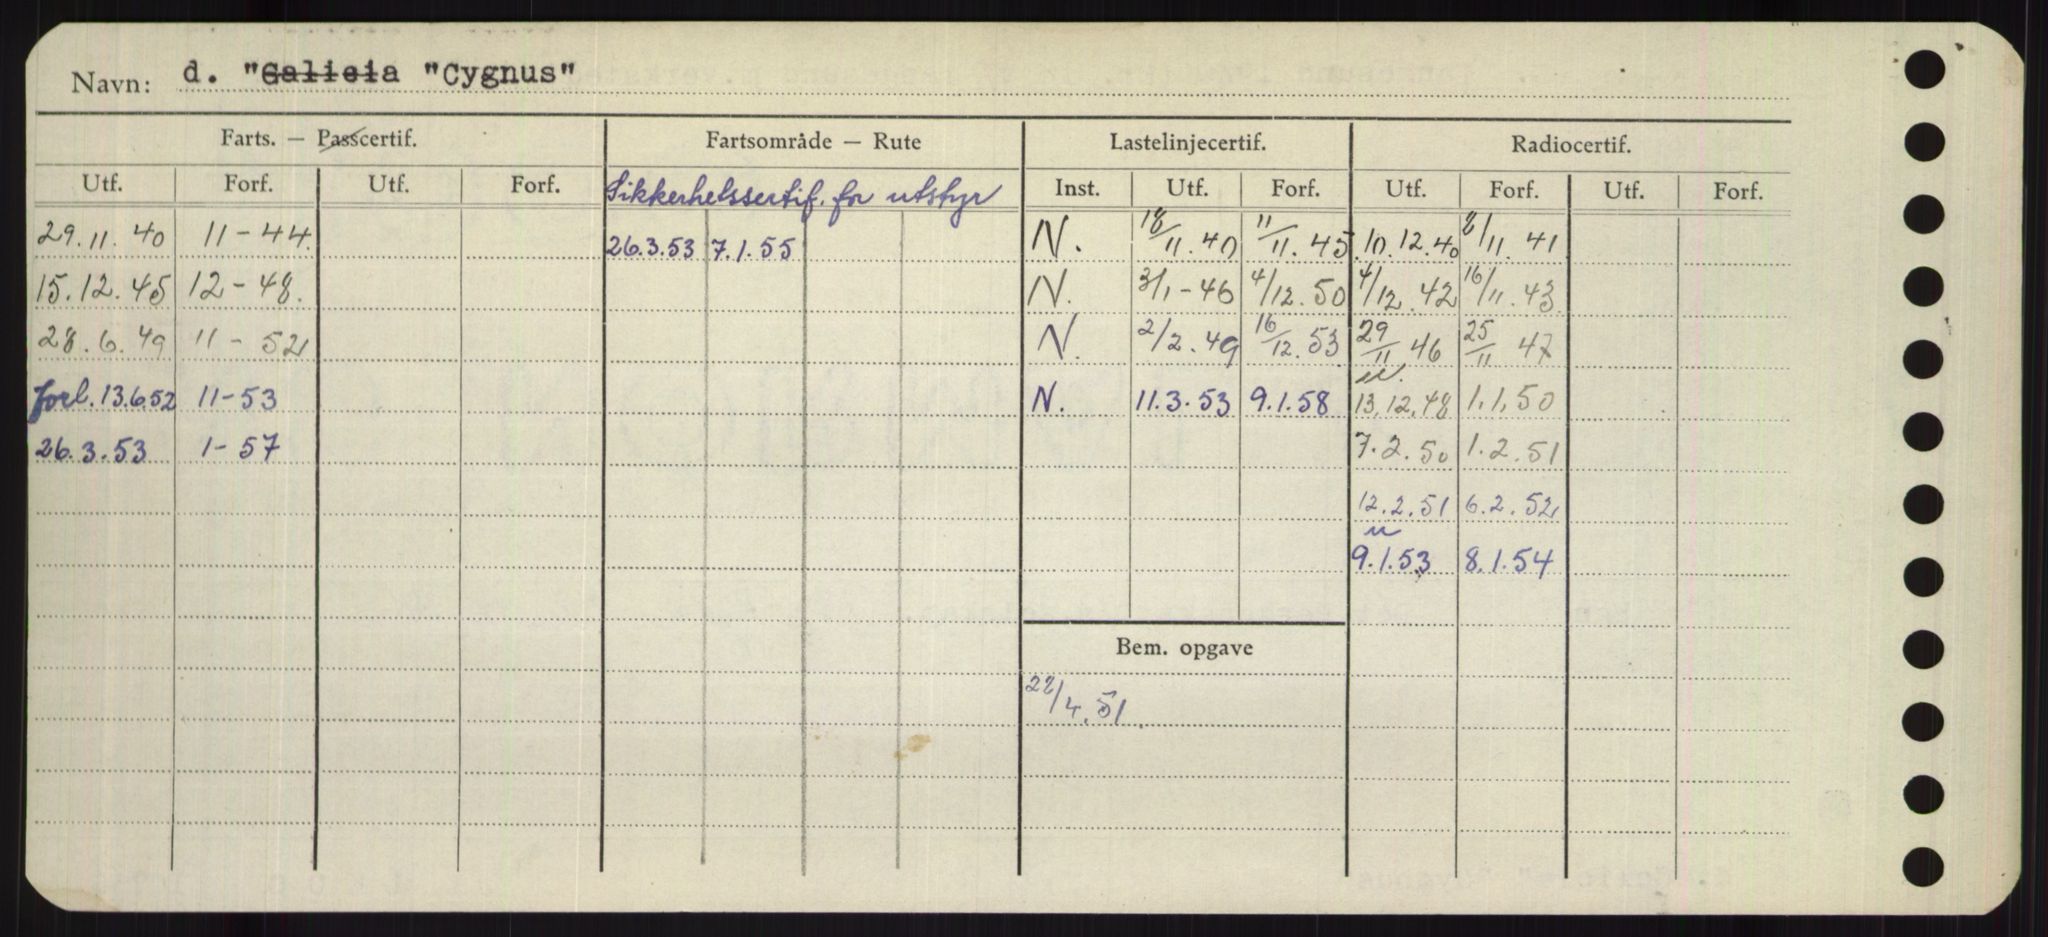 Navn: d. "Galicia "Cygnus"
Farts. — Passcertif. Fartsområde — Rute Lastelinjecertif. Radiocertif.
Utf. Forf. Utf. Forf. Sikkerhetssertif. for utstyr Inst. Utf. Forf. Utf. Forf. Utf. Forf.
29.11.40 11-44. 26.3.53 7.1.55 N. 18/11.40 11/11.45 10.12.40 8/11.41
15.12.45 12-48. N. 3/1-46 4/12.50 4/12.42 16/11.43
28.6.49 11-52 N. 2/2.49 16/12.53 29/11 46 25/11 47
forl. 13.6.52 11-53 N. 11.3.53 9.1.58 13.12.48 1.1.50
26.3.53 1-57 7.2.50 1.2.51
12.2.51 6.2.52
9.1.53 8.1.54
Bem. opgave
28/4.51.